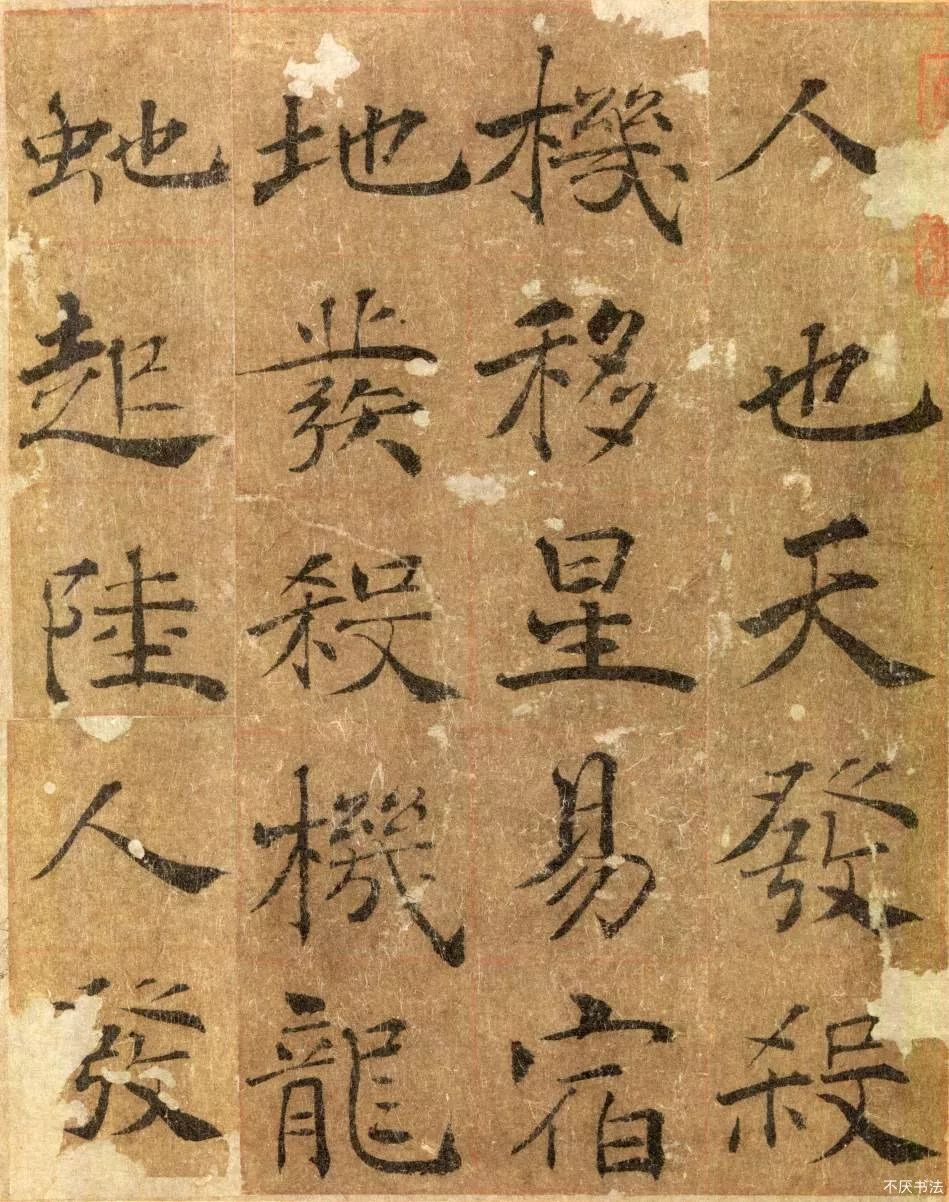 人也天發殺
機移星易宿
地發殺機龍
虵起陸人發
不厌书法